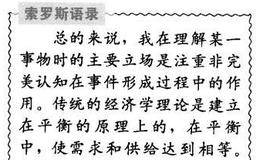 索罗斯语录
总的来说，我在理解某一
事物时的主要立场是注重非完
美认知在事件形成过程中的作
用。传统的经济学理论是建立
在平衡的原理上的，在平衡
中，使需求和供给达到相等。